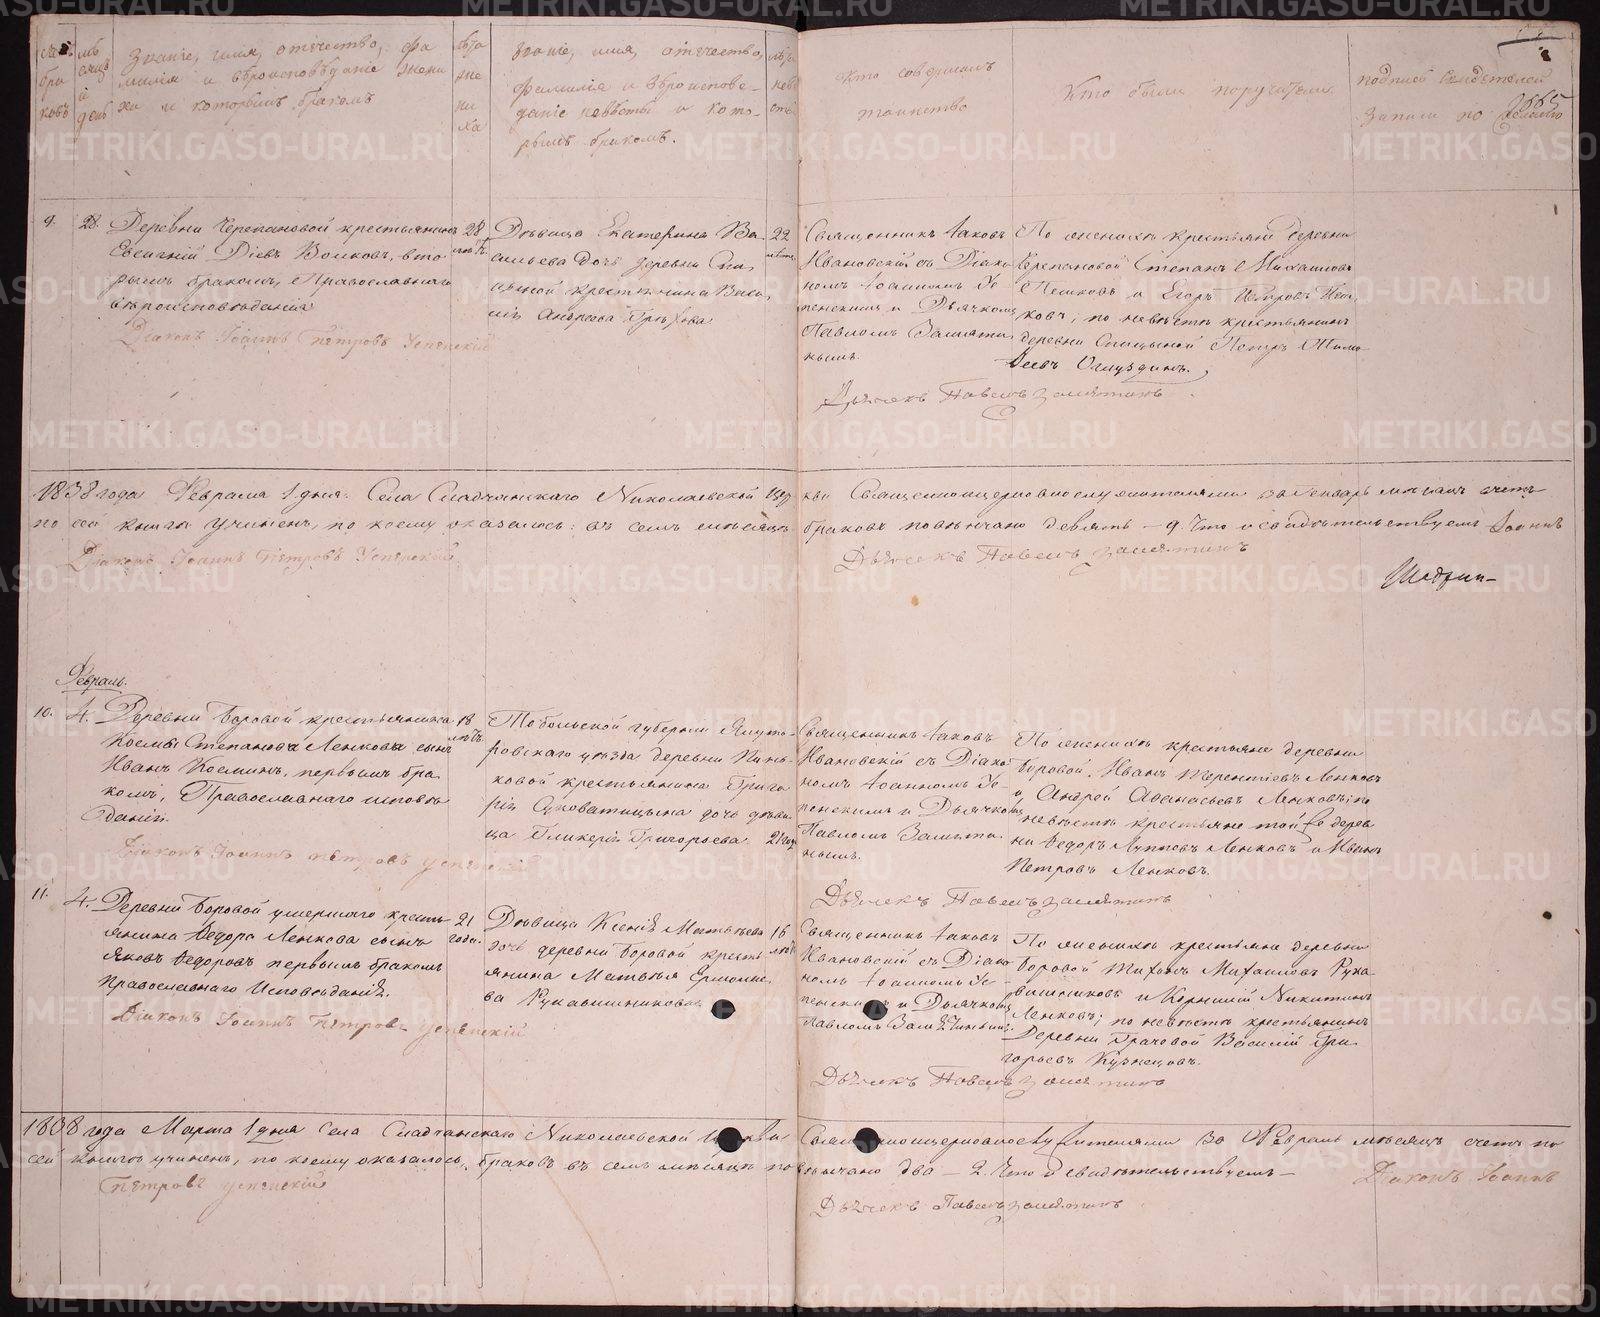 Звание, имя, отчество, фа
милия и вѣроисповѣданіе жени
ха и которымъ бракомъ
лѣта
же
ни
ха
Званіе, имя, отчество,
фамилія и вѣроисповѣ-
даніе невѣсты и кото-
рымъ бракомъ.
Кто совершалъ
таинство
Кто были поручители
подпись свидѣтелей
записи по желанію
9.
28.
Деревни Черепановой крестьянинъ
Евгеній Діевъ Волковъ, вто
рымъ бракомъ, Православнаго
вѣроисповѣданія
28
лѣтъ
Дѣвица Екатерина Ва-
сильева дочь деревни Спи
цыной крестьянина Васи
лія Андреева Грѣхова
22
Священникъ Іаковъ
Ивановскій съ Діако
номъ Іоанномъ Ус
пенскимъ и Дьячкомъ
Павломъ Замяти
нымъ.
По женихѣ крестьяне деревни
Черепановой Степанъ Михаиловъ
Пешковъ и Егоръ Петровъ Пеш
ковъ, по невѣстѣ крестьянинъ
деревни Спицыной Петръ Тимо
Діаконъ Іоаннъ Петровъ Успенскій
Дьячекъ Павелъ Замятинъ
1838 года Февраля 1 дня. Села Сладчанскаго Николаевской церкви Священноцерковнослужителями за Генварь мѣсяцъ счетъ
по сей книгѣ учиненъ, по коему оказалось: въ семъ мѣсяцѣ браковъ повѣнчано девять — 9. Что и свидѣтельствуемъ Іоаннъ
Діаконъ Іоаннъ Петровъ Успенскій
Дьячекъ Павелъ Замятинъ
Февраль.
10.
4.
Деревни Боровой крестьянина
Космы Степанова Ленкова сынъ
Иванъ Косминъ, первымъ бра
комъ, Православнаго исповѣ
данія.
18
лѣтъ
Тобольской губерніи Ялуто-
ровскаго уѣзда деревни
ковой крестьянина Григо
рія Суковатицына дочь дѣви
ца Гликерія Григорьева
21 год
Священникъ Іаковъ
Ивановскій съ Діако
номъ Іоанномъ Ус-
пенскимъ и Дьячкомъ
Павломъ Замяти
нымъ.
По женихѣ крестьяне деревни
Боровой, Иванъ Терентіевъ Ленковъ
и Андрей Афанасьевъ Ленковъ; по
невѣстѣ крестьяне той же дерев
ни Ѳедоръ Ленковъ и Иванъ
Петровъ Ленковъ.
Діаконъ Іоаннъ Петровъ Успенскій
Дьячекъ Павелъ Замятинъ
11.
4.
Деревни Боровой умершаго кресть
янина Ѳедора Ленкова сынъ
Яковъ Ѳедоровъ первымъ бракомъ
Православнаго Исповѣданія.
21
года.
Дѣвица Ксенія Матвѣева
дочь деревни Боровой кресть
янина Матвѣя Ермолае
ва Рукавишникова
16
лѣтъ
Священникъ Іаковъ
Ивановскій съ Діако
номъ Іоанномъ Ус-
пенскимъ и Дьячкомъ
Павломъ Замятинымъ.
По женихѣ крестьяне деревни
Боровой Тихонъ Михаиловъ Рука
вишниковъ и Корнилій Никитинъ
Ленковъ; по невѣстѣ крестьянинъ
Деревни Грачовой Василій Гри
горьевъ Кузнецовъ.
Діаконъ Іоаннъ Петровъ Успенскій
Дьячекъ Павелъ Замятинъ
1838 года Марта 1 дня Села Сладчанскаго Николаевской церкви Священноцерковнослужителями за Февраль мѣсяцъ счетъ по
сей книгѣ учиненъ, по коему оказалось, браковъ въ семъ мѣсяцѣ повѣнчано два — 2. Что и свидѣтельствуемъ — Діаконъ Іоаннъ
Петровъ Успенскій
Дьячекъ Павелъ Замятинъ
METRIKI.GASO-URAL.RU